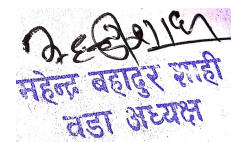 महेन्द्र बहादुर शाही
वडा अध्यक्ष